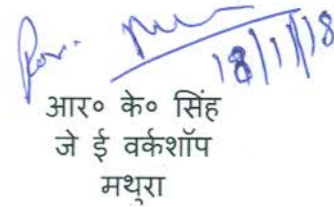 18/11/18
आर० के० सिंह
जे ई वर्कशॉप
मथुरा